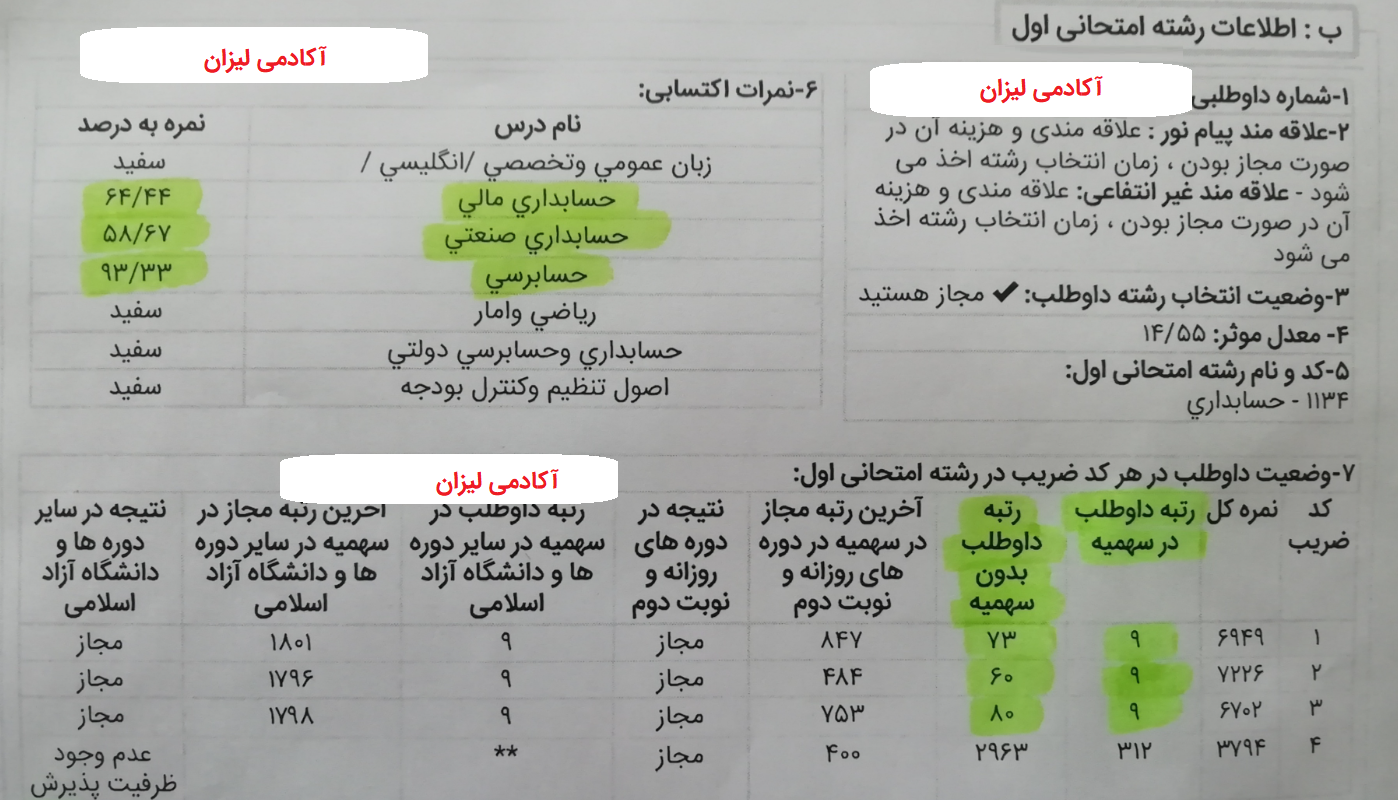 ب : اطلاعات رشته امتحانی اول
آکادمی لیزان
۱-شماره داوطلبی
آکادمی لیزان
۲-علاقه مند پیام نور : علاقه مندی و هزینه آن در
صورت مجاز بودن ، زمان انتخاب رشته اخذ می
شود - علاقه مند غیر انتفاعی: علاقه مندی و هزینه
آن در صورت مجاز بودن ، زمان انتخاب رشته اخذ
می شود
۳-وضعیت انتخاب رشته داوطلب: ✔ مجاز هستید
۴- معدل موثر: ۱۴/۵۵
۵-کد و نام رشته امتحانی اول:
۱۱۳۴ - حسابداري
۶-نمرات اکتسابی:
نام درس نمره به درصد
زبان عمومي وتخصصي /انگليسي / سفید
حسابداري مالي ۶۴/۴۴
حسابداري صنعتي ۵۸/۶۷
حسابرسي ۹۳/۳۳
رياضي وامار سفید
حسابداري وحسابرسي دولتي سفید
اصول تنظيم وکنترل بودجه سفید
آکادمی لیزان
۷-وضعیت داوطلب در هر کد ضریب در رشته امتحانی اول:
کد نمره کل رتبه داوطلب رتبه آخرین رتبه مجاز نتیجه در رتبه داوطلب در آخرین رتبه مجاز در نتیجه در سایر
ضریب در سهمیه داوطلب در سهمیه در دوره دوره های سهمیه در سایر دوره سهمیه در سایر دوره دوره ها و
بدون های روزانه و روزانه و ها و دانشگاه آزاد ها و دانشگاه آزاد دانشگاه آزاد
سهمیه نوبت دوم نوبت دوم اسلامی اسلامی اسلامی
۱ ۶۹۴۹ ۹ ۷۳ ۸۴۷ مجاز ۹ ۱۸۰۱ مجاز
۲ ۷۲۲۶ ۹ ۶۰ ۴۸۴ مجاز ۹ ۱۷۹۶ مجاز
۳ ۶۷۰۲ ۹ ۸۰ ۷۵۳ مجاز ۹ ۱۷۹۸ مجاز
۴ ۳۷۹۴ ۳۱۲ ۲۹۶۳ ۴۰۰ مجاز ** عدم وجود
ظرفیت پذیرش